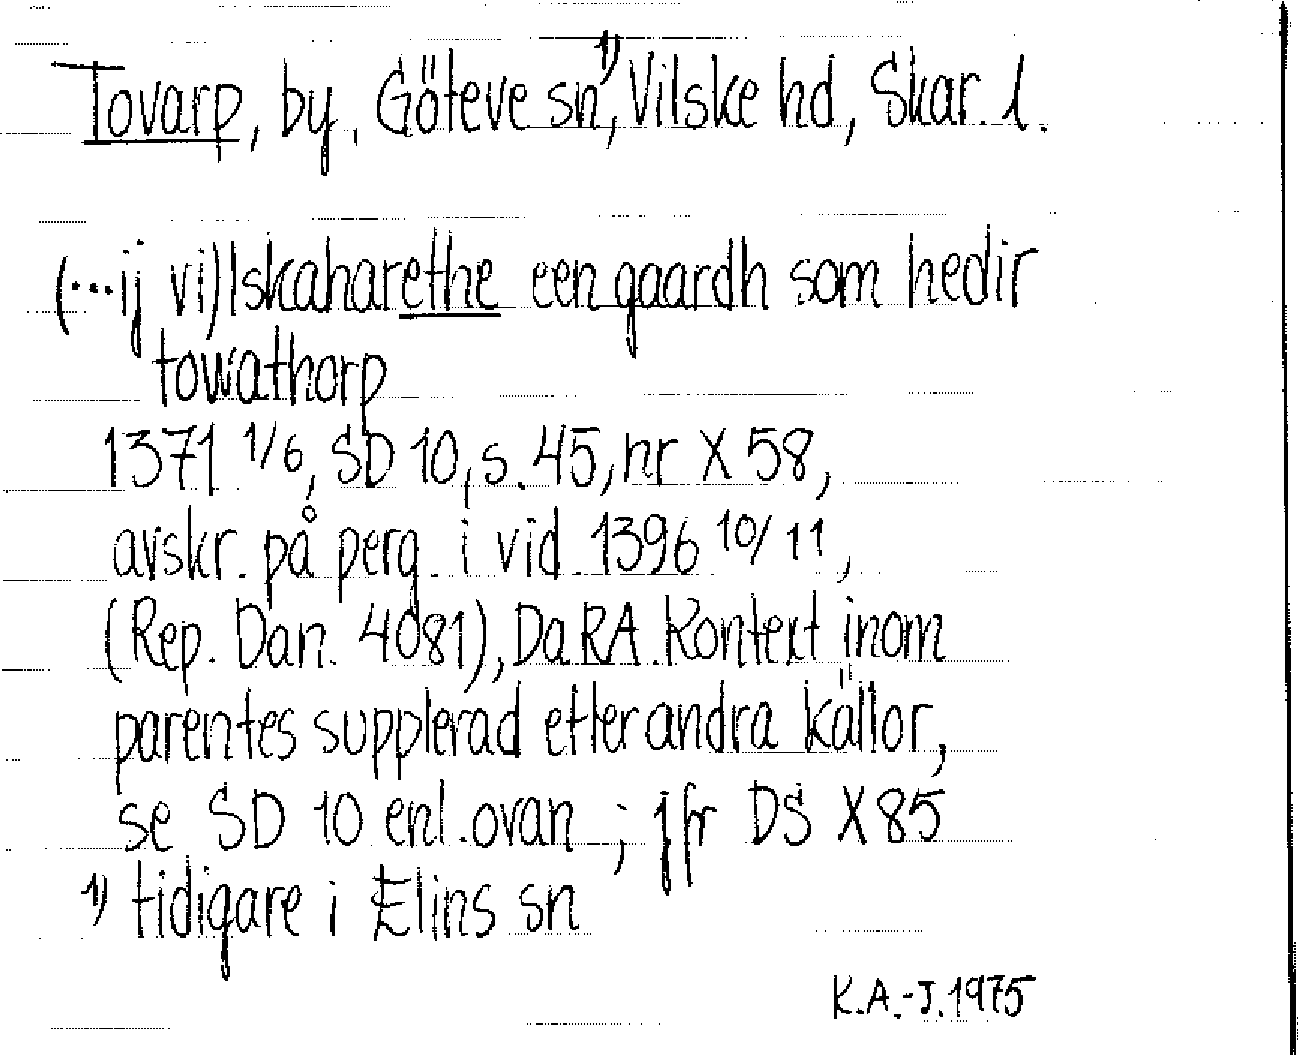 Tovarp, by, Göteve sn¹⁾, Vilske hd, Skar. l.
(...ij vi)lskaharethe een gaardh som hedir
towathorp
1371 1/6, SD 10, s. 45, nr X 58,
avskr. på perg. i vid. 1396 10/11,
(Rep. Dan. 4081), DaRA. Kontext inom
parentes supplerad efter andra källor,
se SD 10 enl. ovan ; jfr DS X 85
¹⁾ tidigare i Elins sn
K.A.-J. 1975